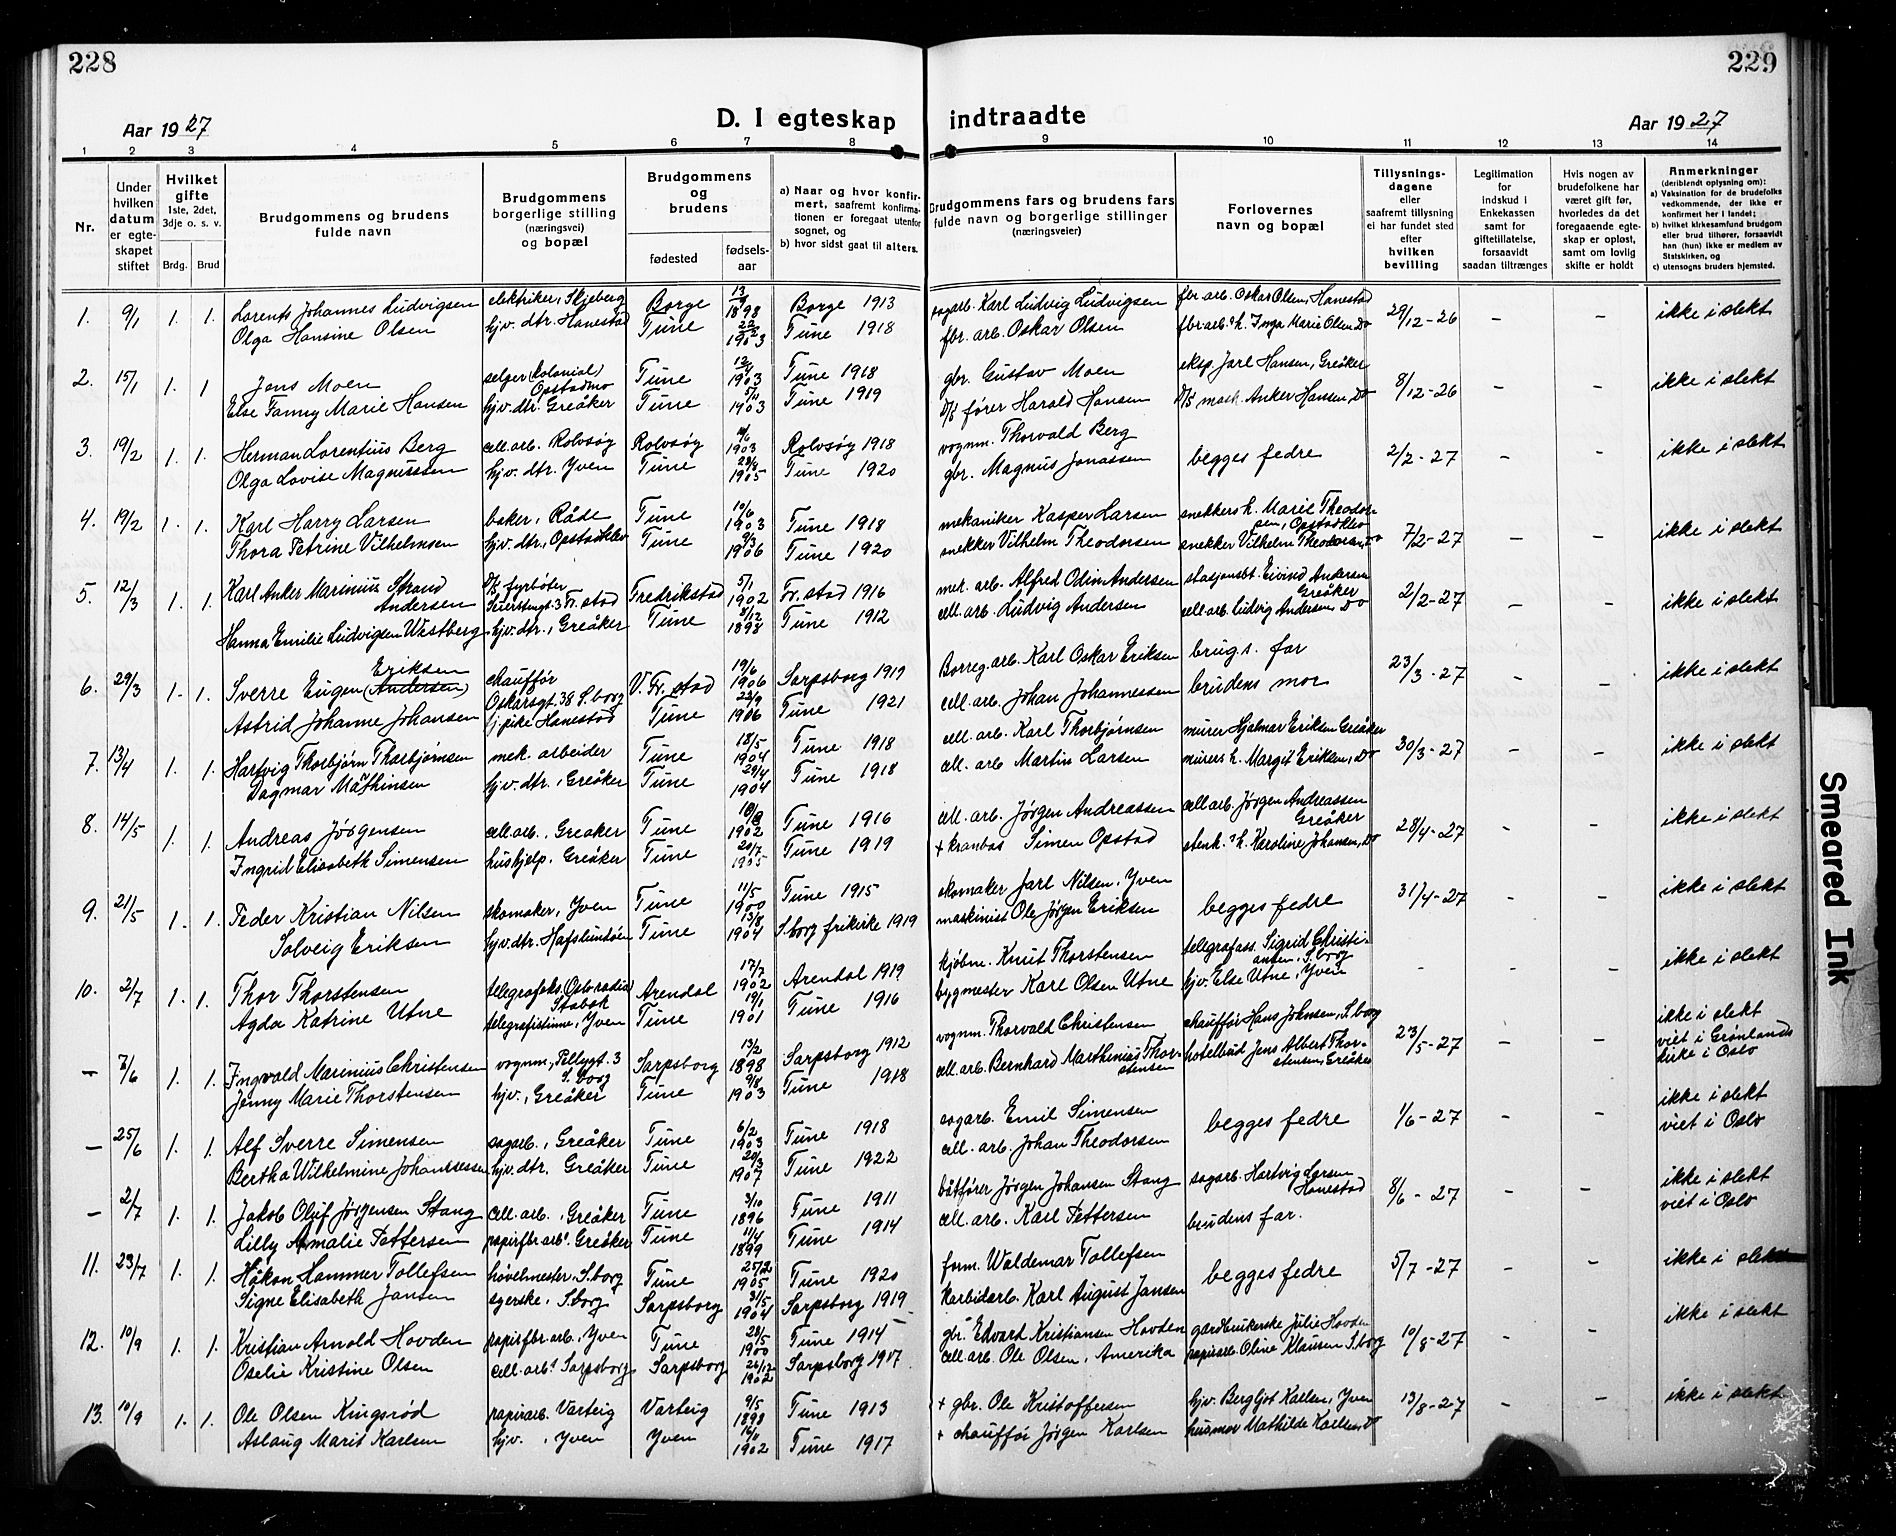 228
229
Aar 1927
D. I egteskap indtraadte
Aar 1927
1 2 3 4 5 6 7 8 9 10 11 12 13 14
Nr.
Under hvilken datum er egteskapet stiftet
Hvilket gifte 1ste, 2det, 3dje o. s. v.
Brdg. Brud
Brudgommens og brudens fulde navn
Brudgommens borgerlige stilling (næringsvei) og bopæl
Brudgommens og brudens
fødested
fødsels-aar
a) Naar og hvor konfirmert, saafremt konfirmationen er foregaat utenfor sognet, og
b) hvor sidst gaat til alters.
Brudgommens fars og brudens fars fulde navn og borgerlige stillinger (næringsveier)
Forlovernes navn og bopæl
Tillysnings-dagene eller saafremt tillysning ei har fundet sted efter hvilken bevilling
Legitimation for indskud i Enkekassen samt for giftetillatelse, forsaavidt saadan tiltrænges
Hvis nogen av brudefolkene har været gift før, hvorledes da det foregaaende egteskap er opløst, samt om lovlig skifte er holdt
Anmerkninger (deriblendt oplysning om):
a) Vaksination for de brudefolks vedkommende, der ikke er konfirmert her i landet;
b) hvilket kirkesamfund brudgom eller brud tilhører, forsaavidt han (hun) ikke er medlem av Statskirken, og
c) utensogns bruders hjemsted.
1. 9/1 1. 1. Lorents Johannes Ludvigsen elektriker, Skjeberg Borge 13/9 1898 Borge 1913 sagarb. Karl Ludvig Ludvigsen fbr. arb. Oskar Olsen, Hanestad 29/12-26 - - ikke i slekt
Olga Hansine Olsen hjv. dtr. Hanestad Tune 22/2 1903 Tune 1918 fbr. arb. Oskar Olsen fbr arb.s h. Inga Marie Olsen, Do
2. 15/1 1. 1 Jens Moen selger (kolonial) Opstadmo Tune 12/4 1903 Tune 1918 gbr. Gustav Moen eksp. Jarl Hansen, Greåker 8/12-26 - - ikke i slekt
Else Fanny Marie Hansen hjv. dtr. Greåker Tune 5/11 1903 Tune 1919 D/S fører Harald Hansen D/S mask. Anker Hansen, Do
3. 19/2 1. 1. Herman Lorentius Berg cell. arb. Rolvsøy Rolvsøy 1903 Rolvsøy 1918 vognm. Thorvald Berg begges fedre 2/2-27 - - ikke i slekt
Olga Lovise Magnussen hjv. dtr. Yven Tune 1905 Tune 1920 gbr. Magnus Jonassen
4. 19/2 1. 1. Karl Harry Larsen baker, Råde Tune 10/6 1903 Tune 1918 mekaniker Kasper Larsen snekkers h. Marie Theodorsen, Opstadklev 7/2-27 - - ikke i slekt
Thora Petrine Vilhelmsen hjv. dtr., Opstadklev Tune 9/3 1906 Tune 1920 snekker Vilhelm Theodorsen snekker Vilhelm Theodorsen, Do
5. 12/3 1. 1. Karl Anker Marinius Strand Andersen D/S fyrbøter 3 Fr. stad Fredrikstad 5/1 1902 Fr. stad 1916 mek. arb. Alfred Odin Andersen stasjonsbt. Eivind Andersen Greåker 2/2-27 - - ikke i slekt
Hanna Emilie Ludvigsen Westberg hjv. dtr., Greåker Tune 8/12 1898 Tune 1912 cell. arb. Ludvig Andersen cell. arb. Ludvig Andersen, Do
6. 29/3 1. 1. Sverre Eugen Eriksen (Andersen) chauffør Oskarsgt. 38 S. borg V. Fr. stad 19/6 1906 Sarpsborg 1919 Borreg. arb. Karl Oskar Eriksen brug s. far 23/3-27 - - ikke i slekt
Astrid Johanne Johansen tj. pike Hanestad Tune 23/9 1906 Tune 1921 cell. arb. Johan Johannessen brudens mor
7. 13/4 1. 1. Hartvig Thorbjørn Thorbjørnsen mek. arbeider Tune 18/5 1904 Tune 1918 cell. arb. Karl Thorbjørnsen murer Hjalmar Eriksen Greåker 30/3-27 - - ikke i slekt
Dagmar Mathinsen hjv. dtr., Greåker Tune 29/4 1904 Tune 1918 cell. arb Martin Larsen murers h. Margit Eriksen, Do
8. 14/5 1. 1. Andreas Jørgensen cell. arb., Greåker Tune 1902 Tune 1916 cell. arb. Jørgen Andreassen cell arb. Jørgen Andreassen Greåker 28/4-27 - - ikke i slekt
Ingrid Elisabeth Simensen hushjelp, Greåker Tune 20/7 1905 Tune 1919 + kranbas Simen Opstad stenh.s h. Karoline Johansen, Do
9. 21/5 1. 1. Peder Kristian Nilsen skomaker, Yven Tune 11/5 1900 Tune 1915 skomaker Jarl Nilsen, Yven begges fedre 31/4-27 - - ikke i slekt
Solveig Eriksen hjv. dtr. Hafslundsøen Tune 13/8 1904 S. borg frikirke 1919 maskinist Ole Jørgen Eriksen
10. 2/7 1. 1. Thor Thorstensen telegrafeks. Oslo radio Stabæk Arendal 17/7 1902 Arendal 1919 kjøbm. Knut Thorstensen telegrafass. Sigrid Christiansen, S. borg - - - ikke i slekt
Agda Katrine Utne telegrafistinne, Yven Tune 19/1 1901 Tune 1916 bygmester Karl Olsen Utne hjv. Else Utne, Yven
- 7/6 1. 1. Ingvald Marinius Christensen vognm., Pellygt. 3 S. borg Sarpsborg 13/2 1898 Sarpsborg 1912 vognm. Thorvald Christensen chauffør Hans Johnsen, S. borg 23/5-27 - - ikke i slekt viet i Grønlands kirke i Oslo
Jenny Marie Thorstensen hjv., Greåker Tune 9/8 1903 Tune 1918 cell. arb. Bernhard Marthinius Thorstensen hotelbud Jens Albert Thorstensen, Greåker
- 25/6 1. 1. Alf Sverre Simensen sagarb., Greåker Tune 6/2 1903 Tune 1918 sagarb. Emil Simensen begges fedre 1/6-27 - - ikke i slekt viet i Oslo
Bertha Wilhelmine Johannessen hjv. dtr. Greåker Tune 20/3 1907 Tune 1922 cell. arb. Johan Theodorsen
- 2/7 1. 1. Jakob Oluf Jørgensen Stang cell. arb., Greåker Tune 3/10 1896 Tune 1911 båtfører Jørgen Johansen Stang sagarb. Hartvig Larsen Hanestad 8/6-27 - - ikke i slekt viet i Oslo
Lilly Amalie Pettersen papirfbr. arb.s Greåker Tune 11/4 1899 Tune 1914 cell. arb. Karl Pettersen brudens far.
11. 23/7 1. 1. Håkon Hammer Tollefsen høvelmester, S. borg Tune 25/2 1905 Tune 1920 form. Waldemar Tollefsen begges fedre 5/7-27 - - ikke i slekt
Signe Elisabeth Jansen syerske, S. borg Sarpsborg 31/5 1904 Sarpsborg 1919 karbidarb. Karl August Jansen
12. 10/9 1. 1. Kristian Arnold Hovden papirfbr. arb., Yven Tune 28/5 1900 Tune 1914 gbr. Edvard Kristiansen Hovden gardbrukerske Julie Hovden 10/8-27 - - ikke i slekt
Oselie Kristine Olsen cell. arb.s Sarpsborg Sarpsborg 26/12 1902 Sarpsborg 1917 cell. arb. Ole Olsen, Amerika papirarb. Oline Klausen S. borg
13. 10/9 1. 1. Ole Olsen Kingsrød papirarb. Varteig Varteig 9/5 1898 Tune 1913 + gbr. Ole Kristoffersen hjv. Bergljot Karlsen, Yven 13/8-27 - - ikke i slekt
Aslaug Marit Karlsen hjv., Yven Yven 16/11 1902 Tune 1917 + chauffør Jørgen Karlsen husmor Mathilde Karlsen, Do
Smeared Ink